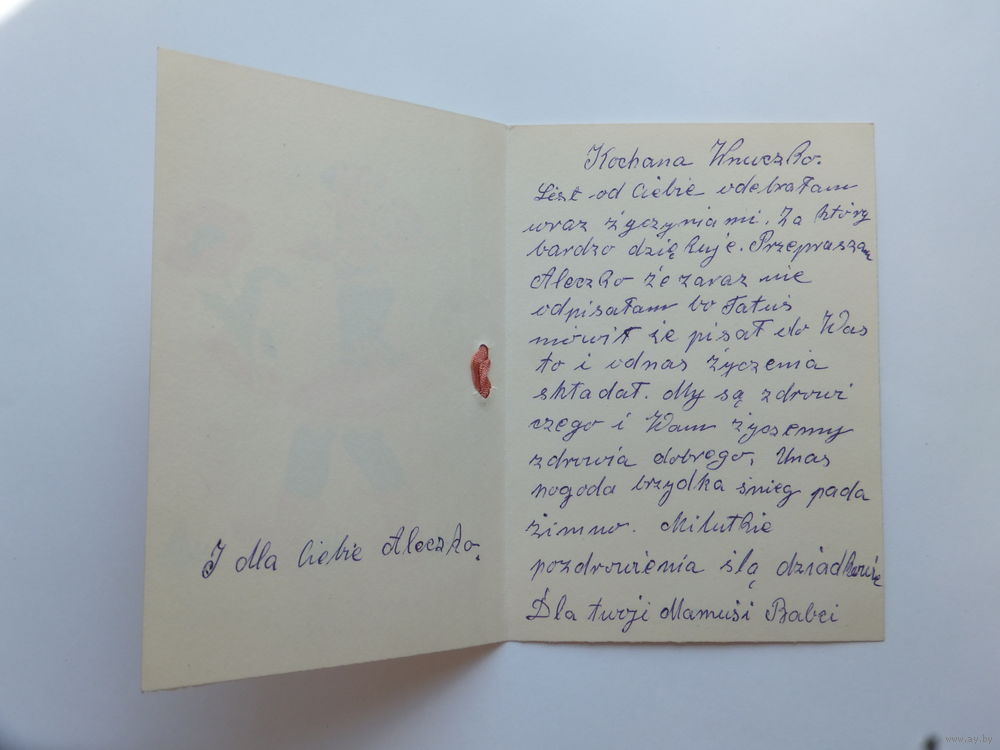 Kochana Wnuczko.
List od Ciebie odebrałam
wraz życzyniami. Za który
bardzo dziękuje. Przepraszam
Aleczko że zaraz nie
odpisałam bo Tatuś
mówił że pisał do Was
to i odnas życzenia
składał. My są zdrowi
czego i Wam życzemy
zdrowia dobrego, Unas
pogoda brzydka śnieg pada
zimno. Milutkie
pozdrowienia ślą dziadkowie
Dla twoji Mamusi Babci
I dla Ciebie Aleczko.
www.ay.by